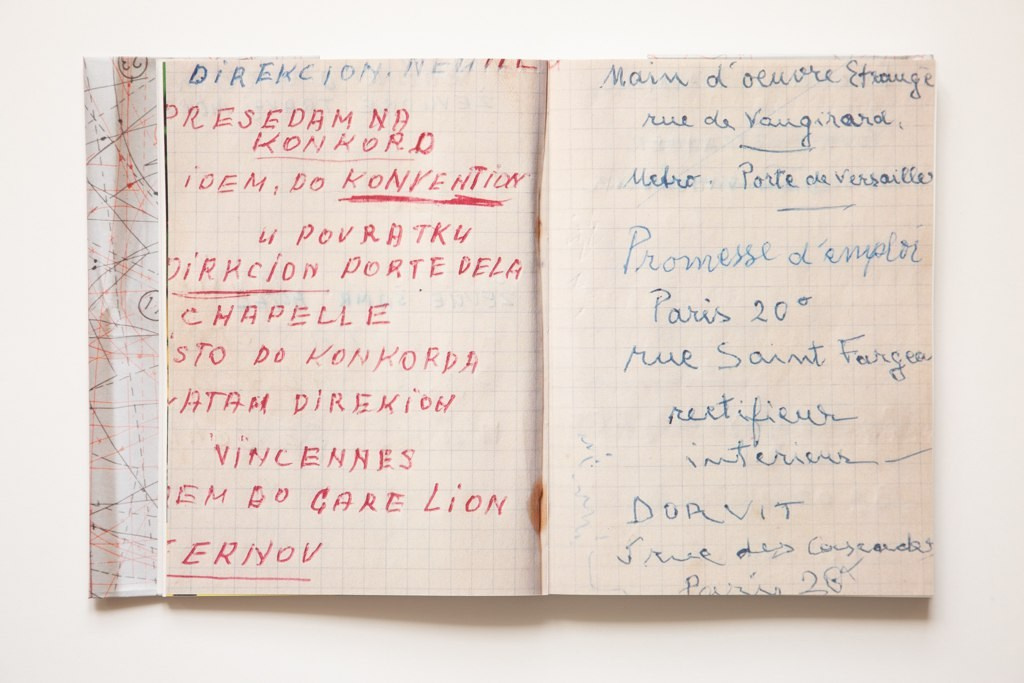 DIREKCION. NEUILL
PRESEDAM NA
KONKORD
IDEM, DO KONVENTION
U POVRATKU
DIRKCION PORTE DELA
CHAPELLE
STO DO KONKORDA
ATAM DIREKION
VINCENNES
EM DO GARE LION
ERNOV
Main d'oeuvre Etrange
rue de Vaugirard,
Metro. Porte de Versailles
Promesse d'emploi
Paris 20e
rue Saint Fargea
rectifieur
interieur
DORVIT
5 rue des Cascades
Paris 20